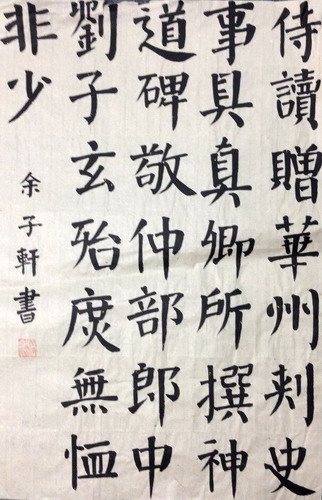 侍讀贈華州刾史
事具真卿所撰神
道碑敬仲部郎中
劉子玄殆庶無恤
非少
余子軒書